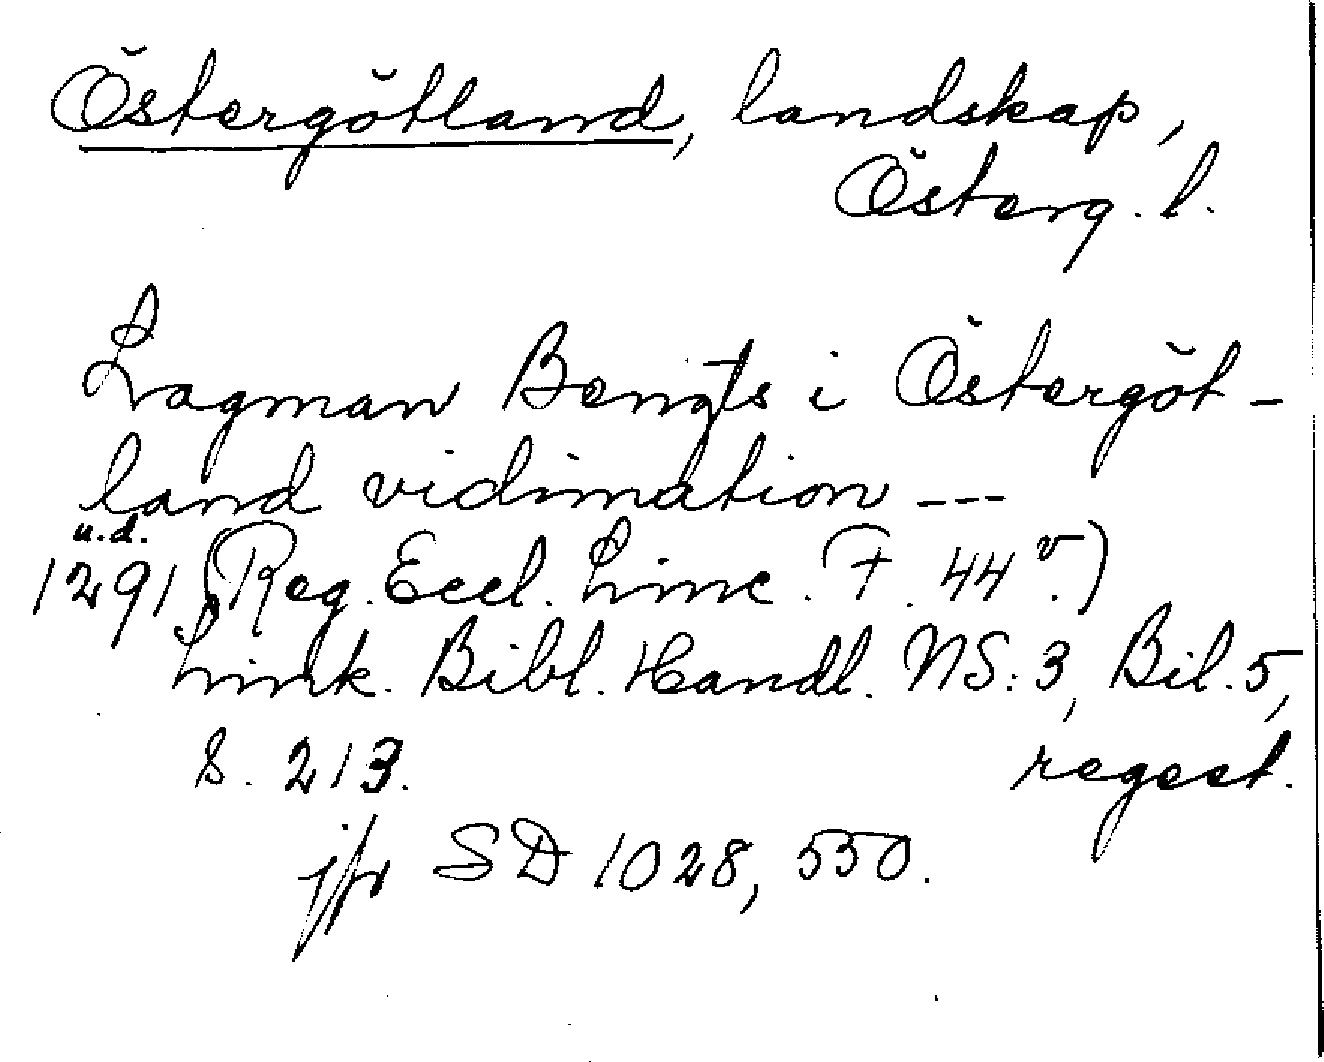 Östergötland, landskap,
Österg. l.
Lagman Bengts i Östergöt-
land vidimation ---
u.d.
1291 (Reg. Eccl. Linc. F. 44 v.)
Link. Bibl. Handl. NS: 3, Bil. 5,
s. 213. regest.
jfr SD 1028, 550.